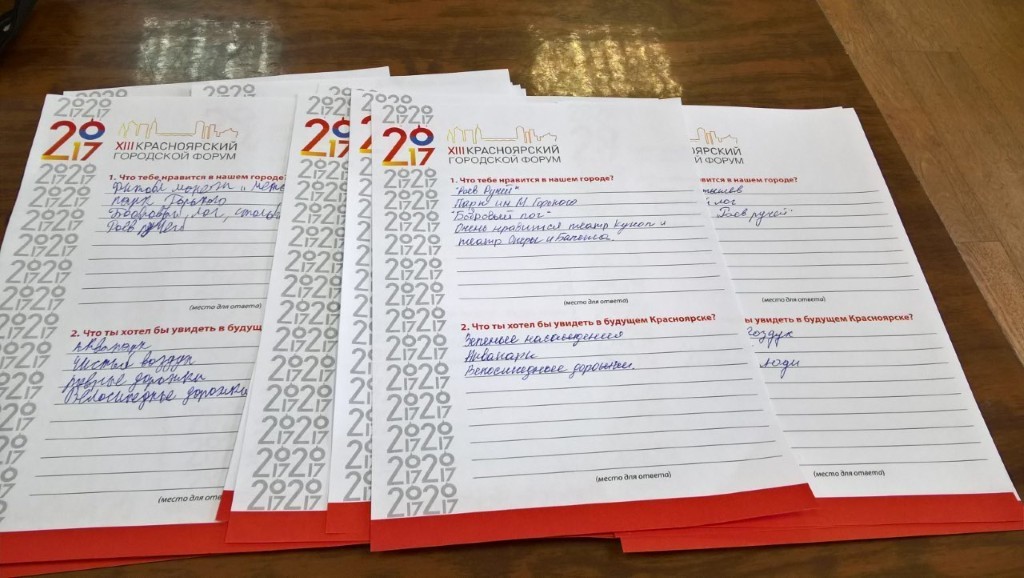 2017
XIII КРАСНОЯРСКИЙ
ГОРОДСКОЙ ФОРУМ
1. Что тебе нравится в нашем городе?
парк Горького
Бобровый лог, столбы
Роев ручей
(место для ответа)
2. Что ты хотел бы увидеть в будущ
Аквапарк
Чистый воздух
дорожки
Велосипедные дорожки
(место для отве
2017
XIII КРАСНОЯРСКИЙ
ГОРОДСКОЙ ФОРУМ
1. Что тебе нравится в нашем городе?
"Роев Ручей"
Парк им М. Горького
"Бобровый лог"
Очень нравится театр кукол и
театр Оперы и Балета.
(место для ответа)
2. Что ты хотел бы увидеть в будущем Красноярске?
Зеленые насаждения
Аквапарк
Велосипедные дорожки.
(место для ответа)
РАСНОЯРСКИЙ
РОДСКОЙ ФОРУМ
нравится в нашем городе?
лог
Роев ручей
(место для ответа)
ы увидеть в будущем Красноярске?
воздух
люди
(место для ответа)